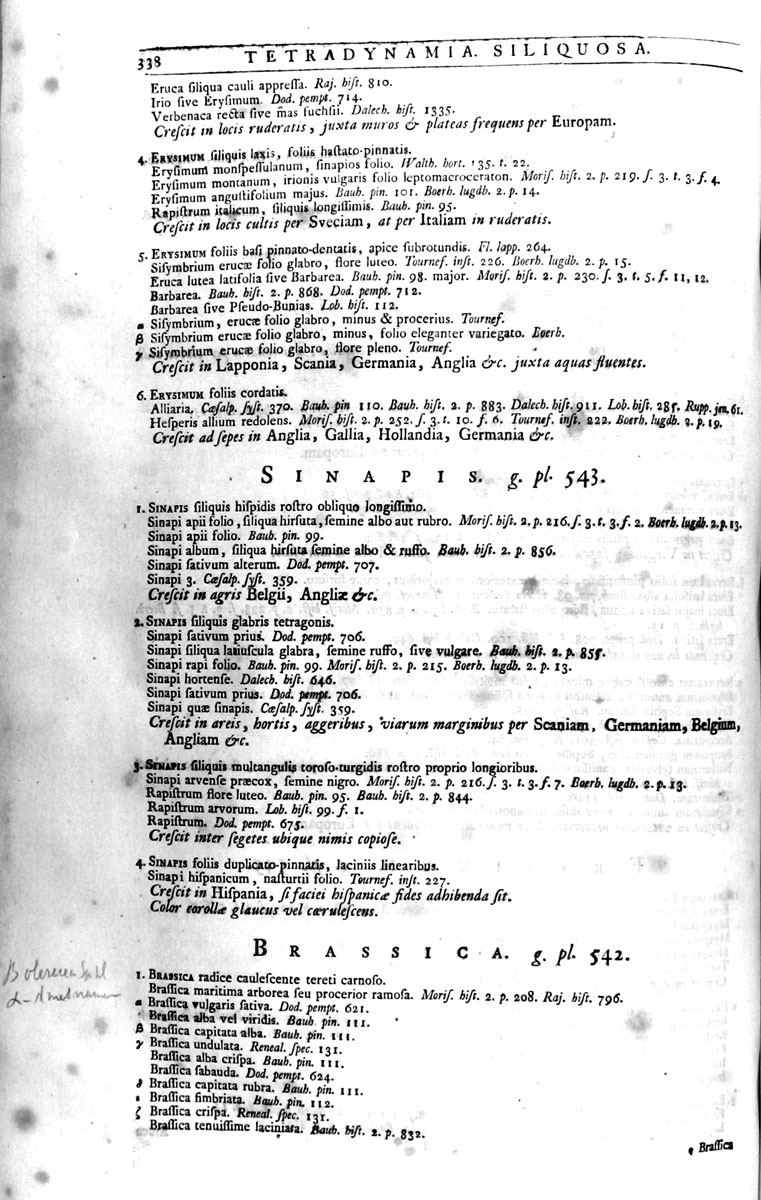 338 TETRADYNAMIA. SILIQUOSA.
Eruca ſiliqua cauli appreſſa. Raj. hiſt. 810.
Irio ſive Eryſimum. Dod. pempt. 714.
Verbenaca recta ſive mas fuchſii. Dalech. hiſt. 1335.
Creſcit in locis ruderatis, juxta muros & plateas frequens per Europam.
4. ERYSIMUM ſiliquis laxis, foliis haſtato-pinnatis.
Eryſimum monſpeſſulanum, ſinapios folio. Walth. hort. 135. t. 22.
Eryſimum montanum, irionis vulgaris folio leptomacroceraton. Moriſ. hiſt. 2. p. 219. ſ. 3. t. 3. f. 4.
Eryſimum anguſtifolium majus. Bauh. pin. 101. Boerh. lugdb. 2. p. 14.
Rapiſtrum italicum, ſiliquis longiſſimis. Bauh. pin. 95.
Creſcit in locis cultis per Sveciam, at per Italiam in ruderatis.
5. ERYSIMUM foliis baſi pinnato-dentatis, apice ſubrotundis. Fl. lapp. 264.
Siſymbrium erucæ folio glabro, flore luteo. Tournef. inſt. 226. Boerh. lugdb. 2. p. 15.
Eruca lutea latifolia ſive Barbarea. Bauh. pin. 98. major. Moriſ. hiſt. 2. p. 230. ſ. 3. t. 5. f. 11, 12.
Barbarea. Bauh. hiſt. 2. p. 868. Dod. pempt. 712.
Barbarea ſive Pſeudo-Bunias. Lob. hiſt. 112.
α Siſymbrium, erucæ folio glabro, minus & procerius. Tournef.
β Siſymbrium erucæ folio glabro, minus, folio eleganter variegato. Boerh.
γ Siſymbrium erucæ folio glabro, flore pleno. Tournef.
Creſcit in Lapponia, Scania, Germania, Anglia &c. juxta aquas fluentes.
6. ERYSIMUM foliis cordatis.
Alliaria. Cæſalp. ſyſt. 370. Bauh. pin 110. Bauh. hiſt. 2. p. 883. Dalech. hiſt. 911. Lob. hiſt. 285. Rupp. jen. 61.
Heſperis allium redolens. Moriſ. hiſt. 2. p. 252. ſ. 3. t. 10. f. 6. Tournef. inſt. 222. Boerh. lugdb. 2. p. 19.
Creſcit ad ſepes in Anglia, Gallia, Hollandia, Germania &c.
SINAPIS. g. pl. 543.
1. SINAPIS ſiliquis hiſpidis roſtro obliquo longiſſimo.
Sinapi apii folio, ſiliqua hirſuta, ſemine albo aut rubro. Moriſ. hiſt. 2. p. 216. ſ. 3. t. 3. f. 2. Boerh. lugdb. 2. p. 13.
Sinapi apii folio. Bauh. pin. 99.
Sinapi album, ſiliqua hirſuta ſemine albo & ruffo. Bauh. hiſt. 2. p. 856.
Sinapi ſativum alterum. Dod. pempt. 707.
Sinapi 3. Cæſalp. ſyſt. 359.
Creſcit in agris Belgii, Angliæ &c.
2. SINAPIS ſiliquis glabris tetragonis.
Sinapi ſativum prius. Dod. pempt. 706.
Sinapi ſiliqua latiuſcula glabra, ſemine ruffo, ſive vulgare. Bauh. hiſt. 2. p. 855.
Sinapi rapi folio. Bauh. pin. 99. Moriſ. hiſt. 2. p. 215. Boerh. lugdb. 2. p. 13.
Sinapi hortenſe. Dalech. hiſt. 646.
Sinapi ſativum prius. Dod. pempt. 706.
Sinapi quæ ſinapis. Cæſalp. ſyſt. 359.
Creſcit in areis, hortis, aggeribus, viarum marginibus per Scaniam, Germaniam, Belgium,
Angliam &c.
3. SINAPIS ſiliquis multangulis toroſo-turgidis roſtro proprio longioribus.
Sinapi arvenſe præcox, ſemine nigro. Moriſ. hiſt. 2. p. 216. ſ. 3. t. 3. f. 7. Boerh. lugdb. 2. p. 13.
Rapiſtrum flore luteo. Bauh. pin. 95. Bauh. hiſt. 2. p. 844.
Rapiſtrum arvorum. Lob. hiſt. 99. f. 1.
Rapiſtrum. Dod. pempt. 675.
Creſcit inter ſegetes ubique nimis copioſe.
4. SINAPIS foliis duplicato-pinnatis, laciniis linearibus.
Sinapi hiſpanicum, naſturtii folio. Tournef. inſt. 227.
Creſcit in Hiſpania, ſi faciei hiſpanicæ fides adhibenda ſit.
Color corollæ glaucus vel cæruleſcens.
BRASSICA. g. pl. 542.
1. BRASSICA radice cauleſcente tereti carnoſo.
Braſſica maritima arborea ſeu procerior ramoſa. Moriſ. hiſt. 2. p. 208. Raj. hiſt. 796.
α Braſſica vulgaris ſativa. Dod. pempt. 621.
Braſſica alba vel viridis. Bauh pin. 111.
β Braſſica capitata alba. Bauh. pin. 111.
γ Braſſica undulata. Reneal. ſpec. 131.
Braſſica alba criſpa. Bauh. pin. 111.
Braſſica ſabauda. Dod. pempt. 624.
δ Braſſica capitata rubra. Bauh. pin. 111.
ε Braſſica fimbriata. Bauh. pin. 112.
ζ Braſſica criſpa. Reneal. ſpec. 131.
Braſſica tenuiſſime laciniata. Bauh. hiſt. 2. p. 832.
Braſſica